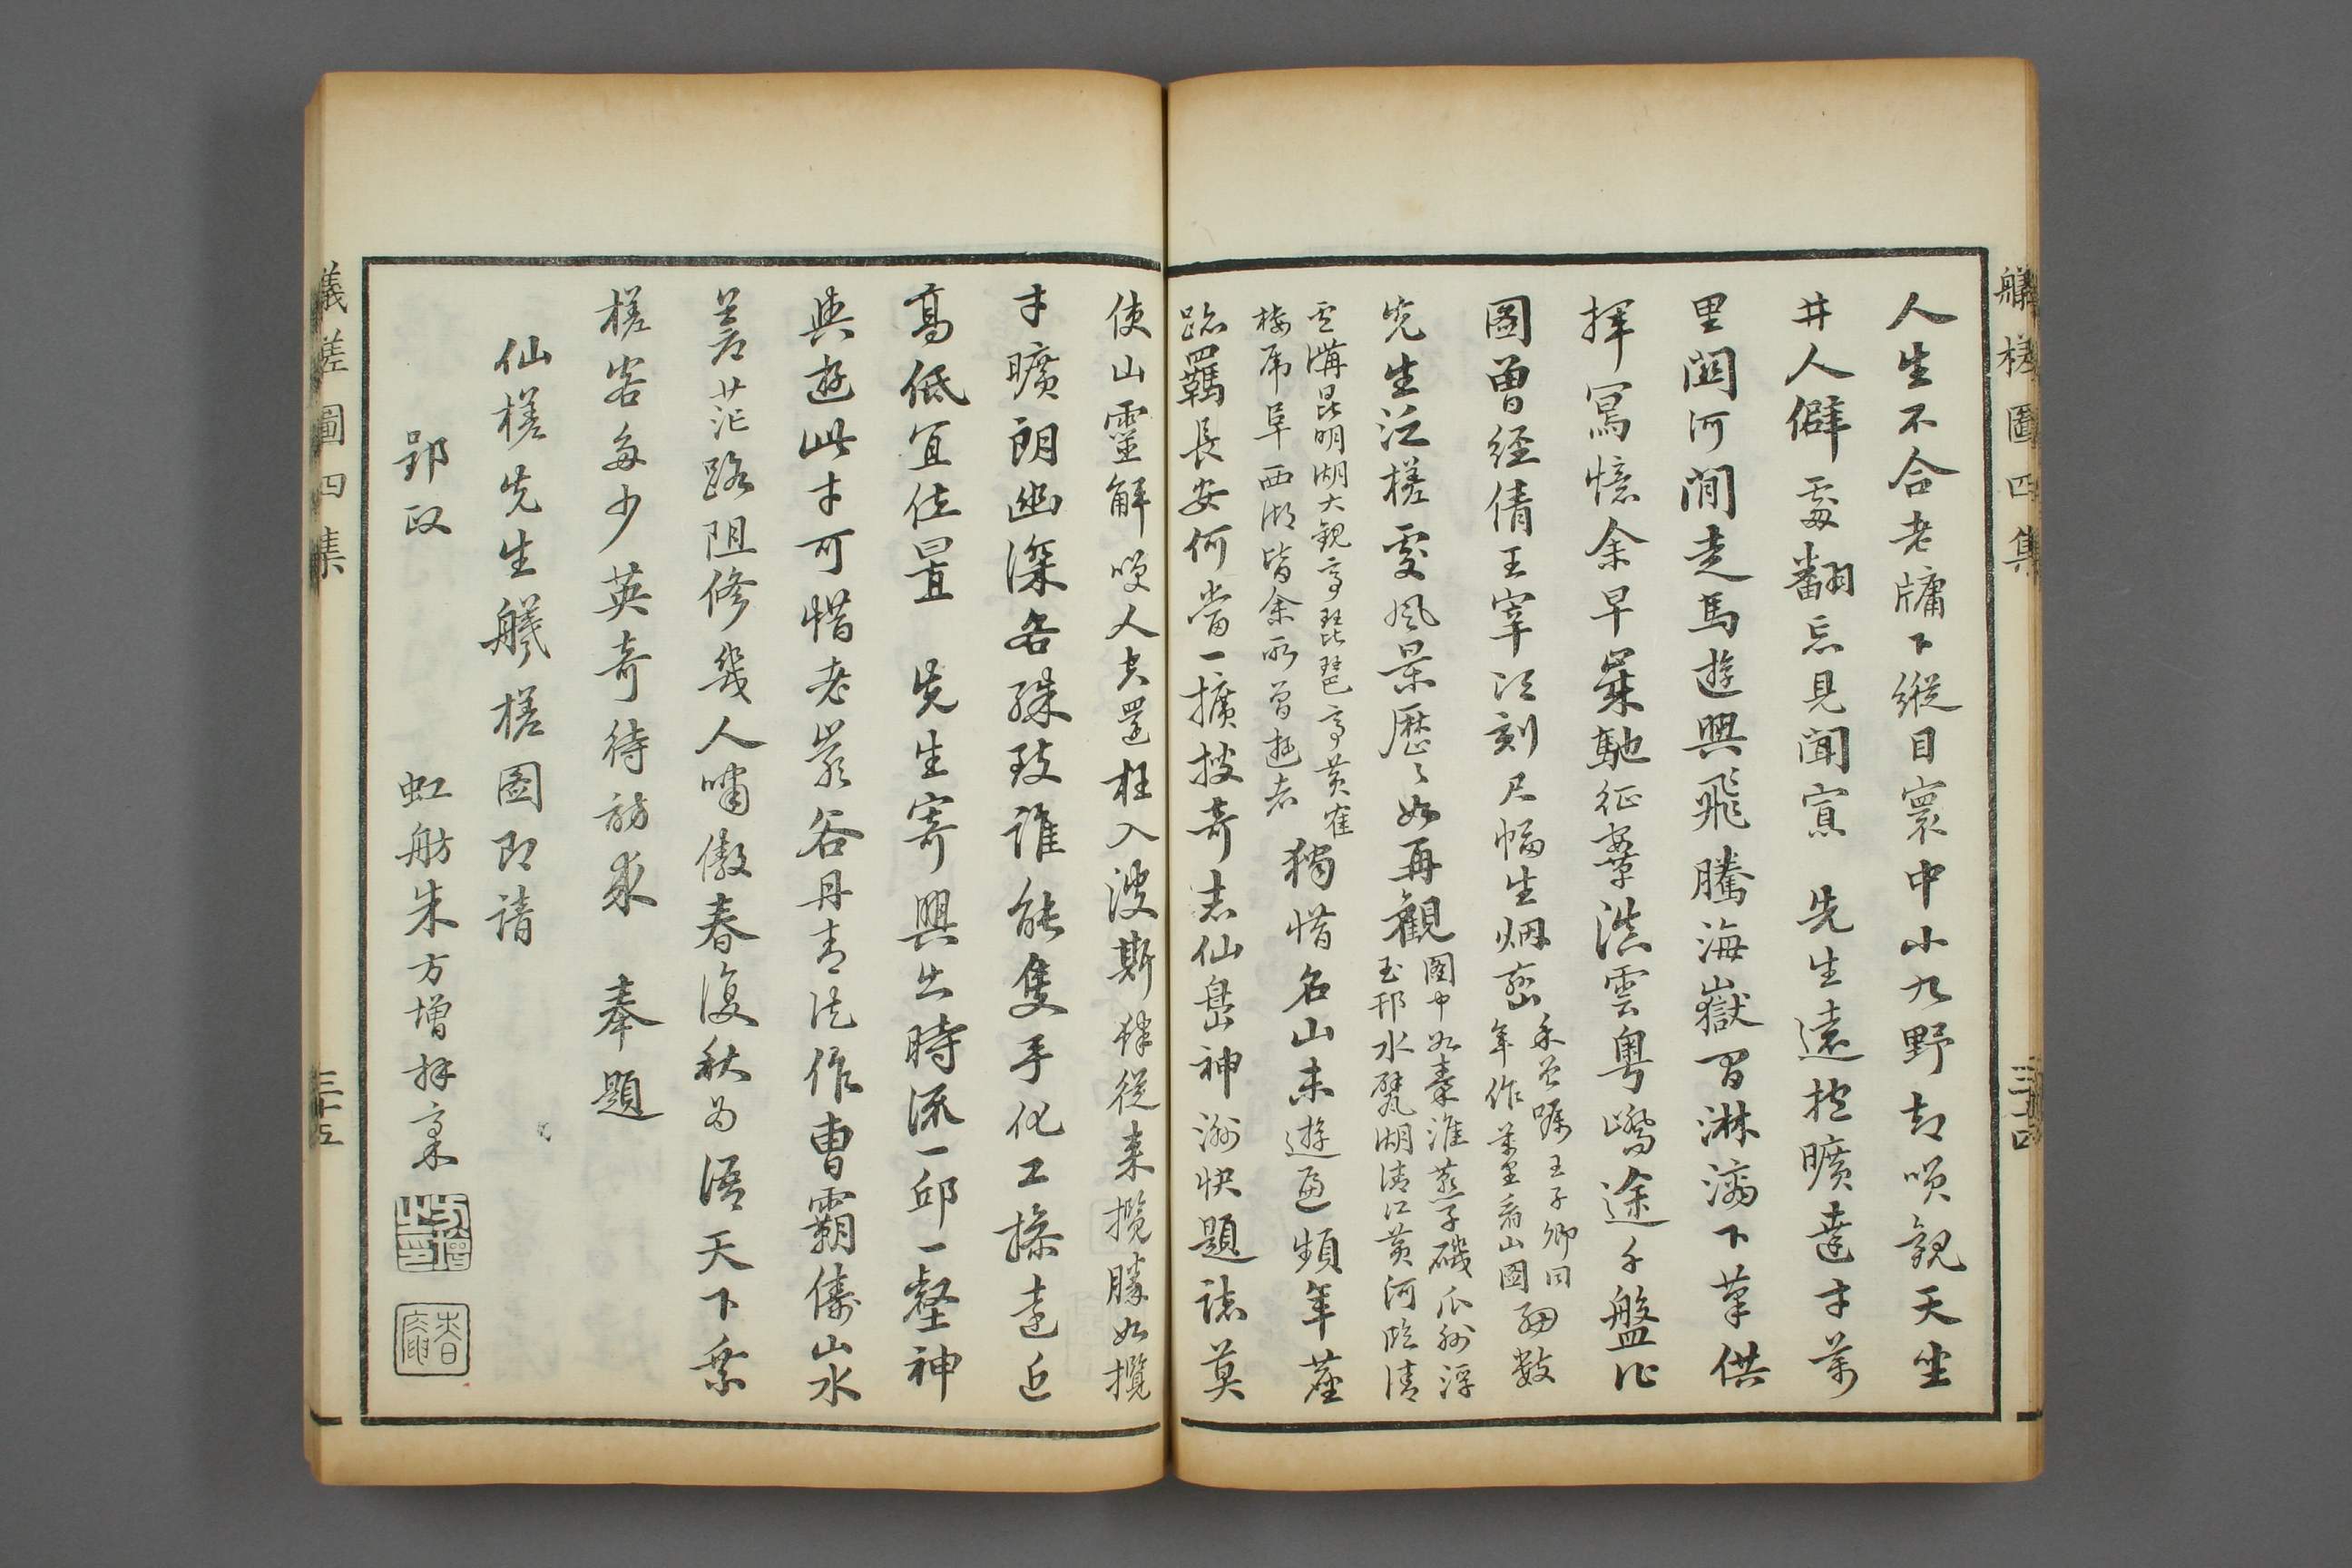 艤槎圖四集
三十四
人生不合老牖下縱目寰中小九野却嘆觀天坐
井人僻處翻忘見聞寡　先生遠抱曠達才萬
里關河閒走馬遊興飛騰海嶽間淋漓下筆供
揮寫憶余早歲馳征橐滇雲粵嶠途千盤作
圖曾經倩王宰江刻尺幅生烟巒
年作萬里看山圖
細數
先生泛槎處風景歷歷如再觀
圖中如秦淮燕子磯瓜洲浮
玉邗水甓湖清江黃河臨清
盧溝昆明湖大觀亭琵琶亭黃鶴
樓虎阜西湖皆余所曾遊者
獨惜名山未遊遍頻年塵
跡羈長安何當一擴搜奇志仙島神洲快題誌莫
使山靈解笑人空還枉入波斯肆從來攬勝如攬
才曠朗幽深各殊致誰能隻手化工操遠近
高低宜位置　先生寄興出時流一邱一壑神
與遊此才可惜老巖谷丹青法作曹霸儔山水
蒼茫路阻修幾人嘯傲春復秋為語天下乘
槎客多少英奇待訪求　奉題
仙槎先生艤槎圖即請
郢政
虹舫朱方增拜稾
方增之印
艤槎圖四集
三十五